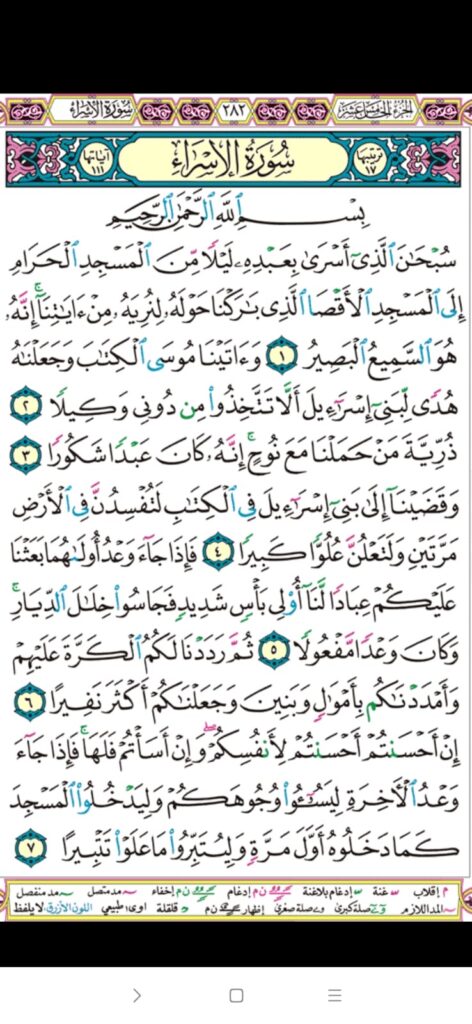 سُورَةُ الإِسْرَاءِ ٢٨٢ الجزء الخامس عشر
ترتيبها ١٧ سُورَةُ الإِسْرَاءِ آياتها ١١١
بِسْمِ اللَّهِ الرَّحْمَٰنِ الرَّحِيمِ
سُبْحَٰنَ الَّذِىٓ أَسْرَىٰ بِعَبْدِهِۦ لَيْلًا مِّنَ الْمَسْجِدِ الْحَرَامِ
إِلَى الْمَسْجِدِ الْأَقْصَا الَّذِى بَٰرَكْنَا حَوْلَهُۥ لِنُرِيَهُۥ مِنْ ءَايَٰتِنَآ ۚ إِنَّهُۥ
هُوَ السَّمِيعُ الْبَصِيرُ ١ وَءَاتَيْنَا مُوسَى الْكِتَٰبَ وَجَعَلْنَٰهُ
هُدًى لِّبَنِىٓ إِسْرَٰٓءِيلَ أَلَّا تَتَّخِذُوا مِن دُونِى وَكِيلًا ٢
ذُرِّيَّةَ مَنْ حَمَلْنَا مَعَ نُوحٍ ۚ إِنَّهُۥ كَانَ عَبْدًا شَكُورًا ٣
وَقَضَيْنَآ إِلَىٰ بَنِىٓ إِسْرَٰٓءِيلَ فِى الْكِتَٰبِ لَتُفْسِدُنَّ فِى الْأَرْضِ
مَرَّتَيْنِ وَلَتَعْلُنَّ عُلُوًّا كَبِيرًا ٤ فَإِذَا جَآءَ وَعْدُ أُولَىٰهُمَا بَعَثْنَا
عَلَيْكُمْ عِبَادًا لَّنَآ أُو۟لِى بَأْسٍ شَدِيدٍ فَجَاسُوا خِلَٰلَ الدِّيَارِ ۚ
وَكَانَ وَعْدًا مَّفْعُولًا ٥ ثُمَّ رَدَدْنَا لَكُمُ الْكَرَّةَ عَلَيْهِمْ
وَأَمْدَدْنَٰكُم بِأَمْوَٰلٍ وَبَنِينَ وَجَعَلْنَٰكُمْ أَكْثَرَ نَفِيرًا ٦
إِنْ أَحْسَنتُمْ أَحْسَنتُمْ لِأَنفُسِكُمْ ۖ وَإِنْ أَسَأْتُمْ فَلَهَا ۚ فَإِذَا جَآءَ
وَعْدُ الْأَخِرَةِ لِيَسُـُٔوا وُجُوهَكُمْ وَلِيَدْخُلُوا الْمَسْجِدَ
كَمَا دَخَلُوهُ أَوَّلَ مَرَّةٍ وَلِيُتَبِّرُوا مَا عَلَوْا تَتْبِيرًا ٧
م إقلاب غنة إدغام بلاغنة ن م إدغام ن م إخفاء مد متصل مد منفصل
المد اللازم صلة كبرى صلة صغرى إظهار ن م قلقلة اوى: طبيعي اللون الأزرق: لا يلفظ